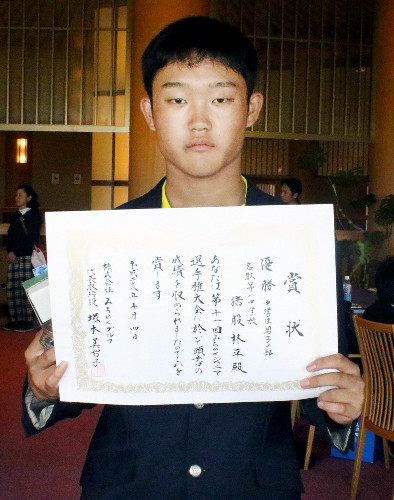 賞状
優勝 中学生男子の部
名取第一中学校
猪股林平殿
あなたは第十一回みちのくジュニア
選手権大会に於いて頭書の
成績を収められましたのでこれを
賞します
平成二八年十月四日
株式会社みちのくゴルフ
代表取締役